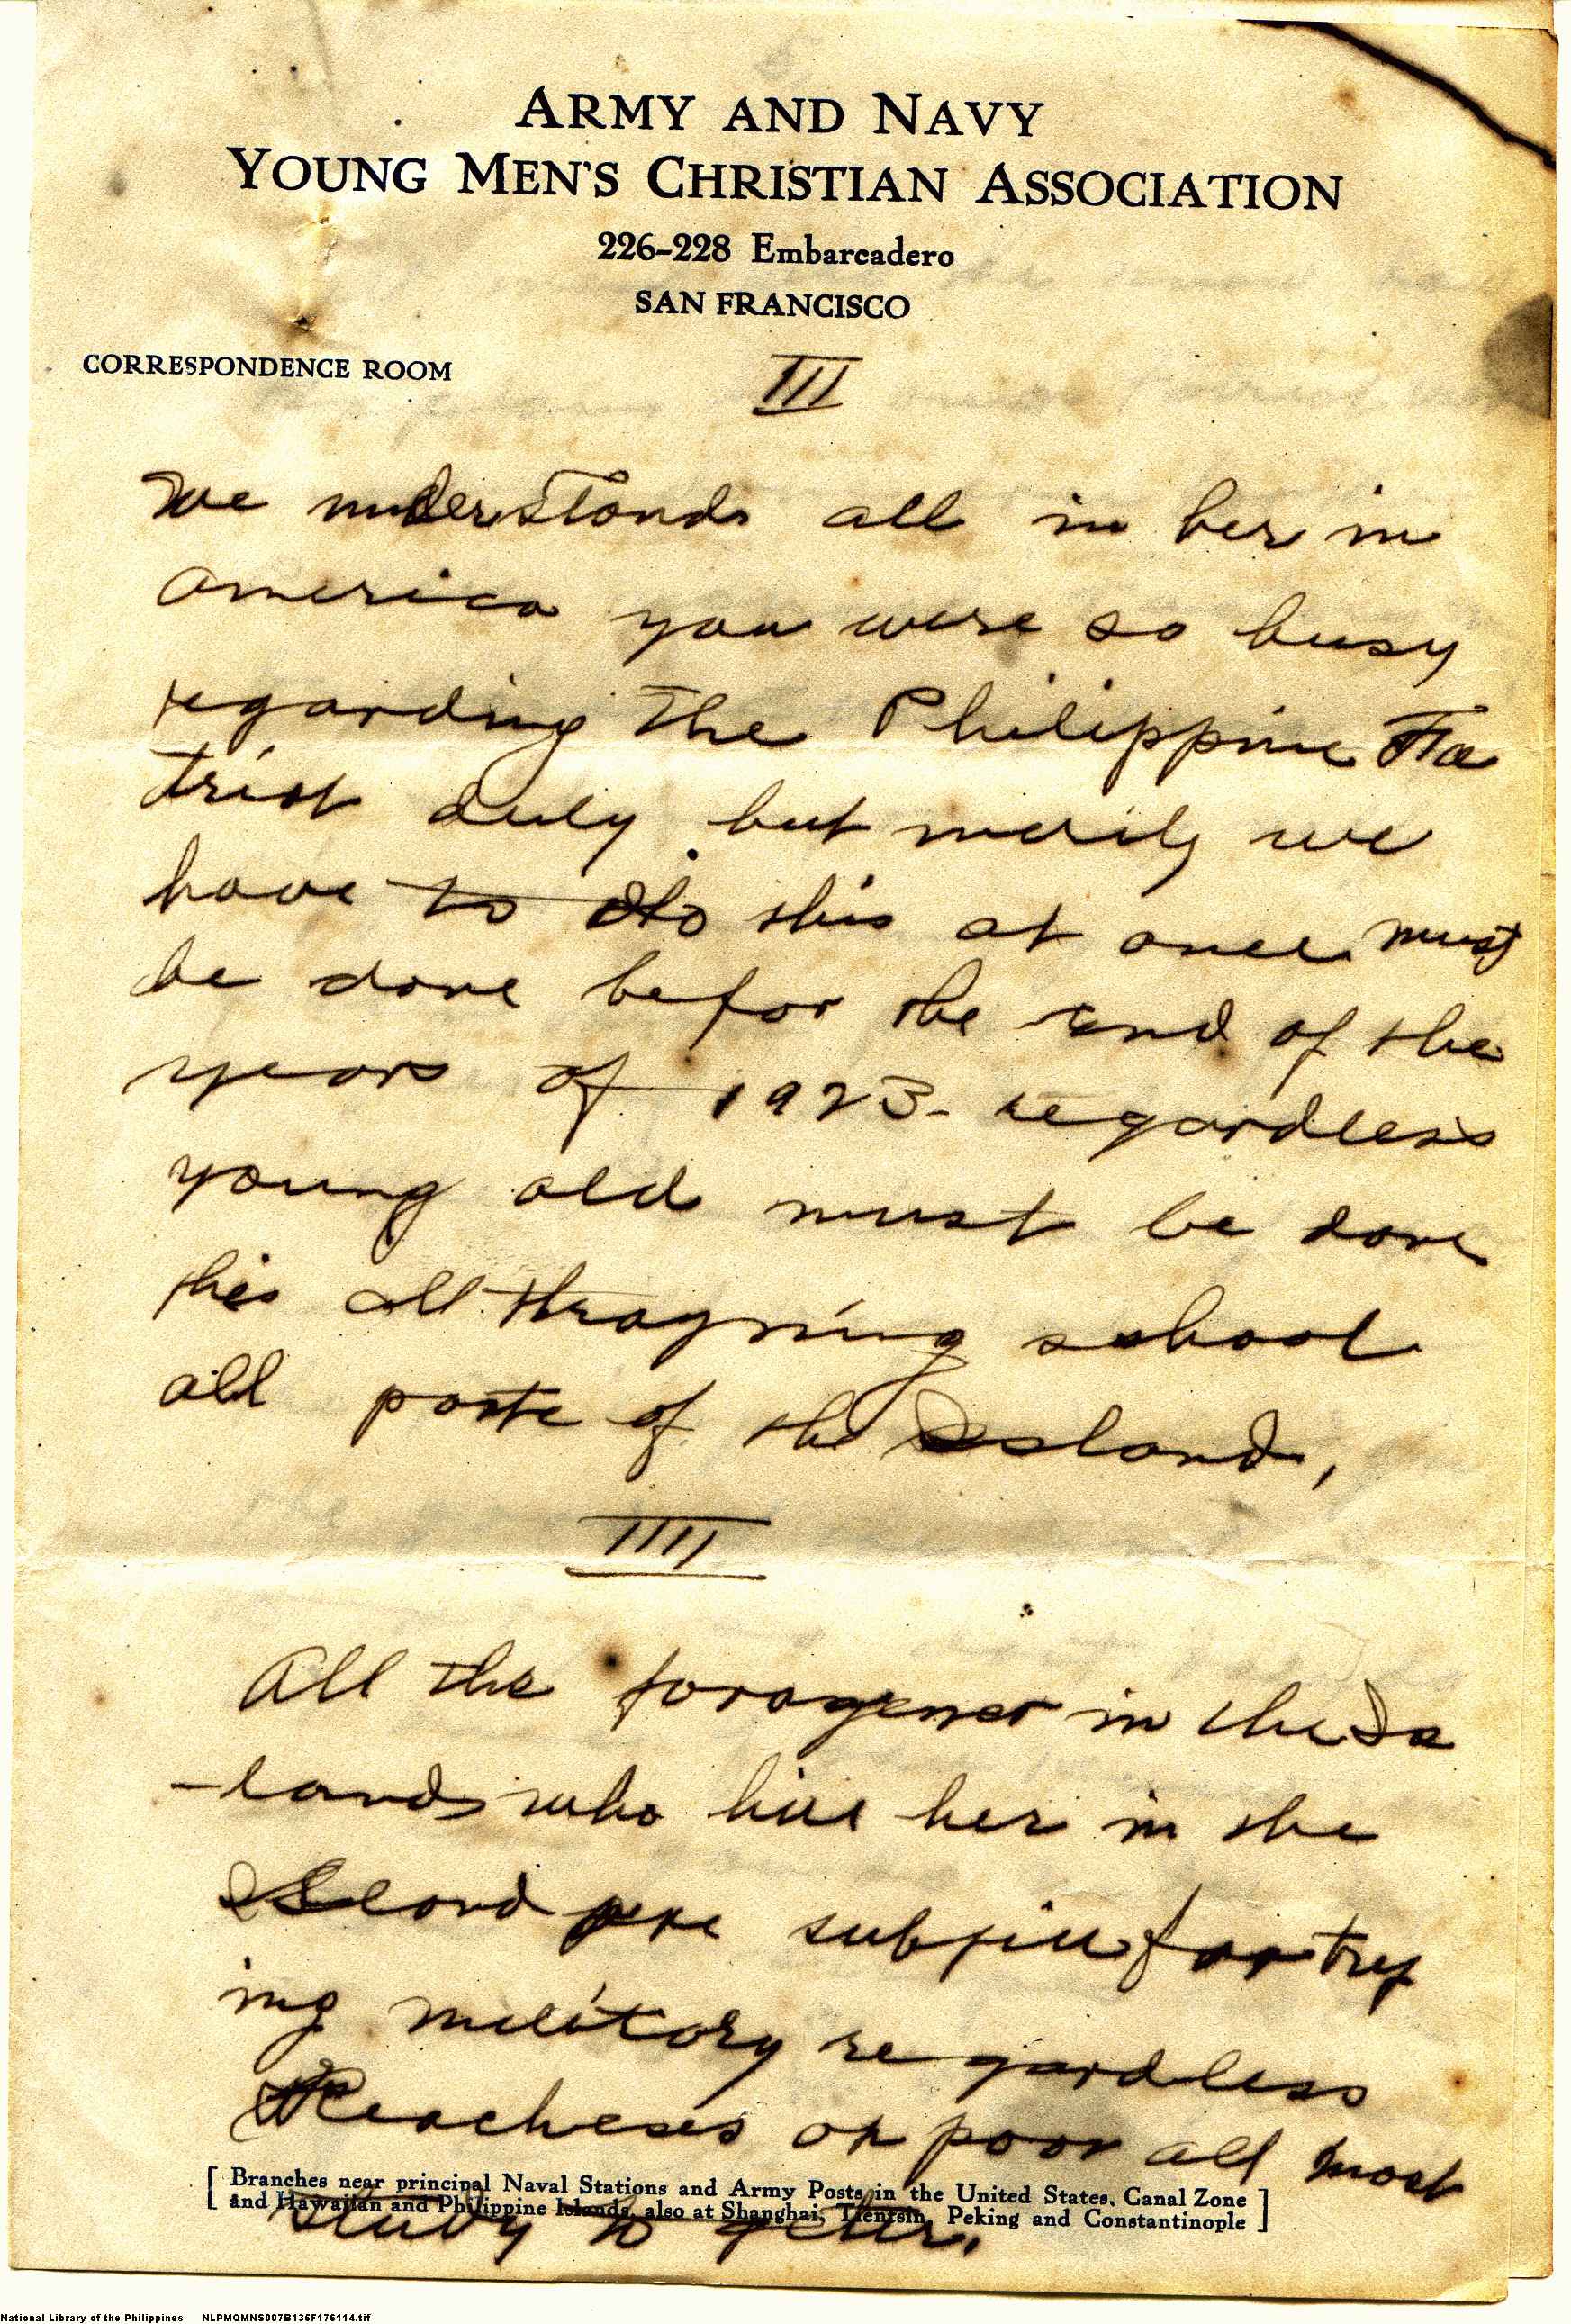 ARMY AND NAVY
YOUNG MEN'S CHRISTIAN ASSOCIATION
226-228 Embarcadero
SAN FRANCISCO
CORRESPONDENCE ROOM
III
We understands all in her in
america you were so busy
regarding the Philippine
duly but we
have to do this at once must
be done befor the end of the
years of 1923- regardless
young old must be done
this all thrayning school
all parte of the Island,
IIII
All the foragener in the Is
-lands who live her in the
for try
ing military regardless
Reacheses or poor all most
[Branches near principal Naval Stations and Army Posts in the United States, Canal Zone
and Hawaiian and Philippine Islands, also at Shanghai, Tientsin, Peking and Constantinople]
study to
National Library of the Philippines NLPMQMNS007B135F176114.tif